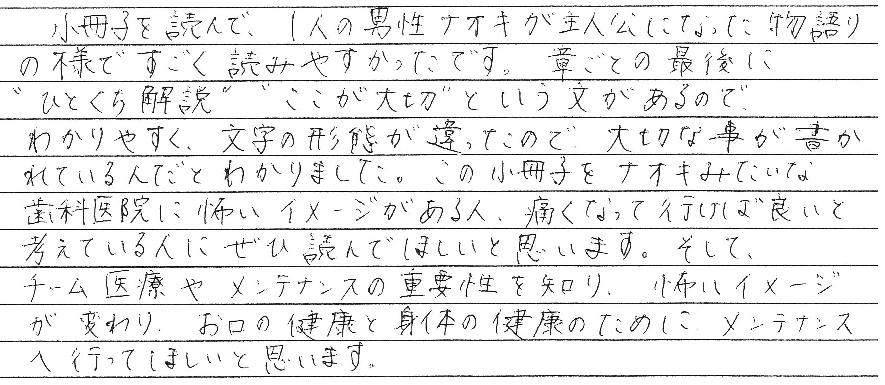 小冊子を読んで、1人の男性ナオキが主人公になった物語り
の様ですごく読みやすかったです。章ごとの最後に
"ひとくち解説" "ここが大切"という文があるので、
わかりやすく、文字の形態が違ったので、大切な事が書か
れているんだとわかりました。この小冊子をナオキみたいな
歯科医院に怖いイメージがある人、痛くなって行けば良いと
考えている人にぜひ読んでほしいと思います。そして、
チーム医療やメンテナンスの重要性を知り、怖いイメージ
が変わり、お口の健康と身体の健康のために、メンテナンス
へ行ってほしいと思います。